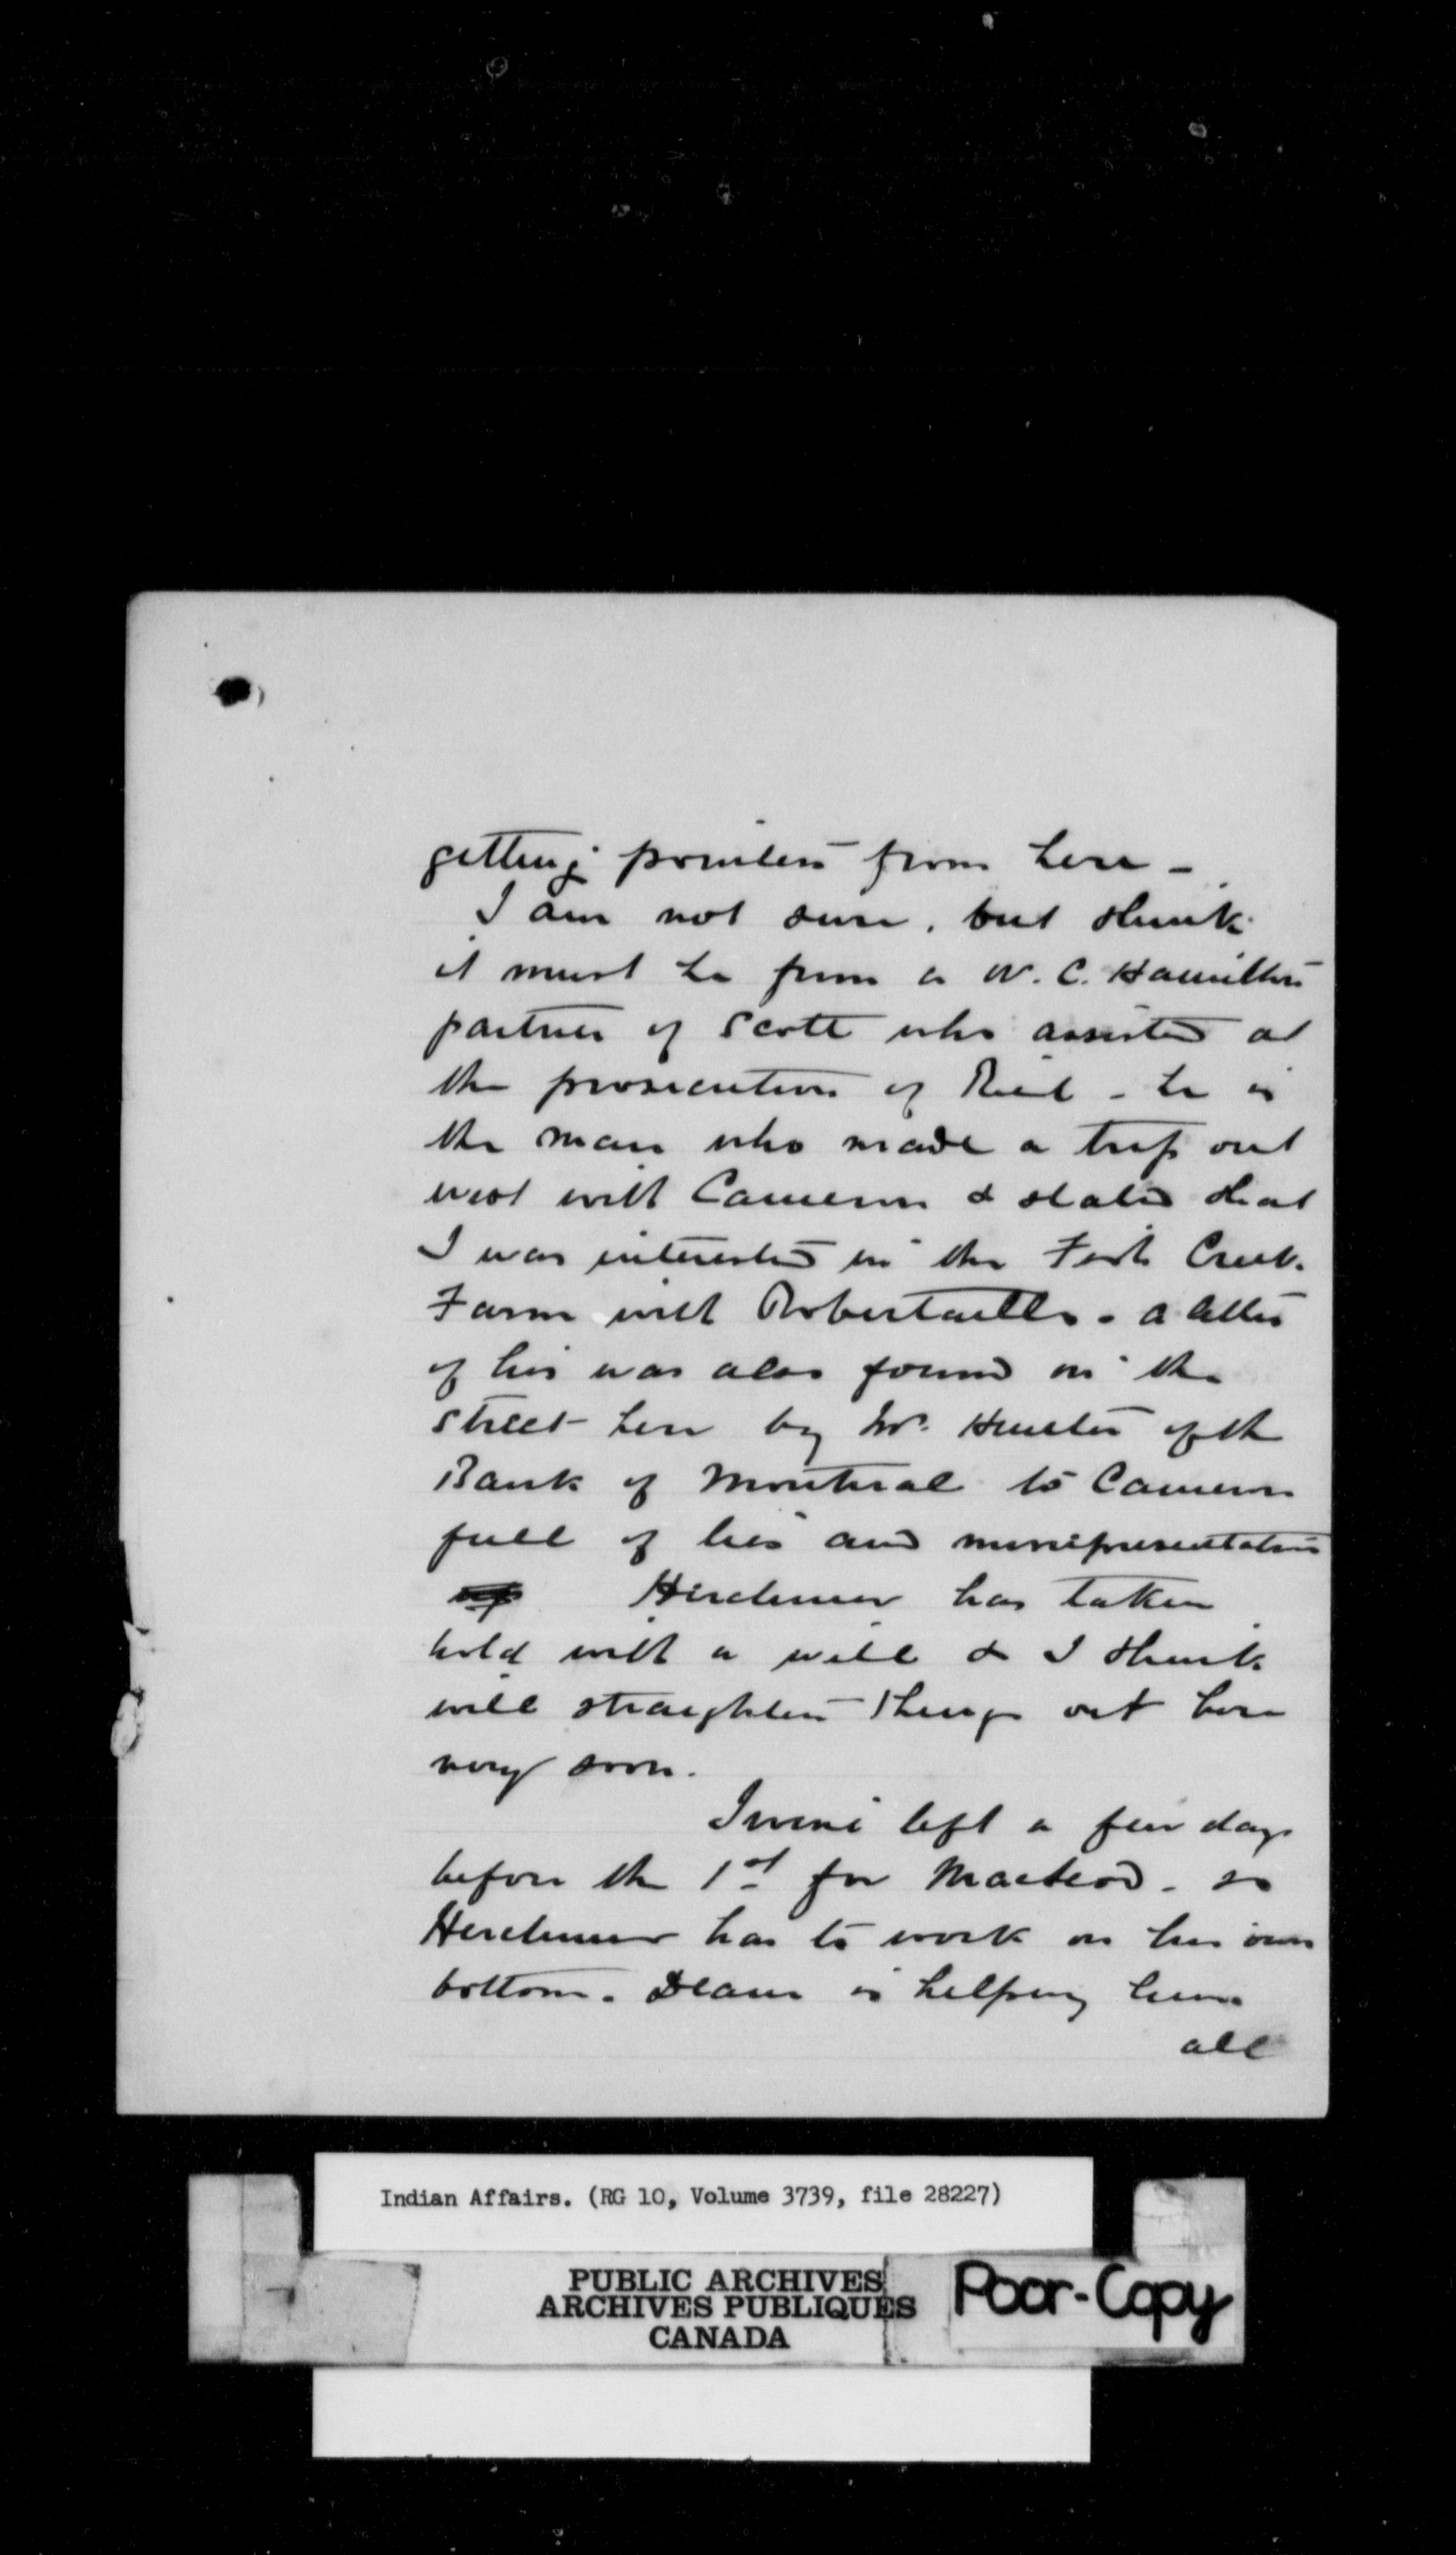 getting pointers from here -
I am not sure, but think
it must be from a W. C. Hamilton
partner of Scott who assisted at
the prosecution of Riel - he is
the man who made a trip out
west with Cameron & stated that
I was interested in the Fish Creek
Farm with Robertaille. a letter
of his was also found on the
street here by Mr. Hunter of the
Bank of Montreal to Cameron
full of lies and misrepresentations
Herchmer has taken
hold with a will & I think
will straighten things out here
very soon.
Irvine left a few days
before the 1st for Macleod - so
Herchmer has to work on his own
bottom. Deane is helping him
all
Indian Affairs. (RG 10, Volume 3739, file 28227)
PUBLIC ARCHIVES
ARCHIVES PUBLIQUES
CANADA
Poor-Copy